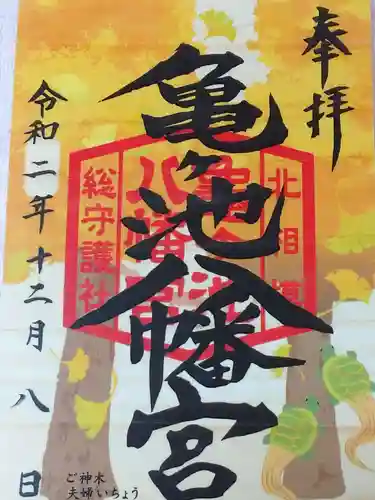 奉拝
亀ヶ池八幡宮
北相模
亀ヶ池
八幡宮
総守護社
令和二年十二月八日
ご神木
夫婦いちょう